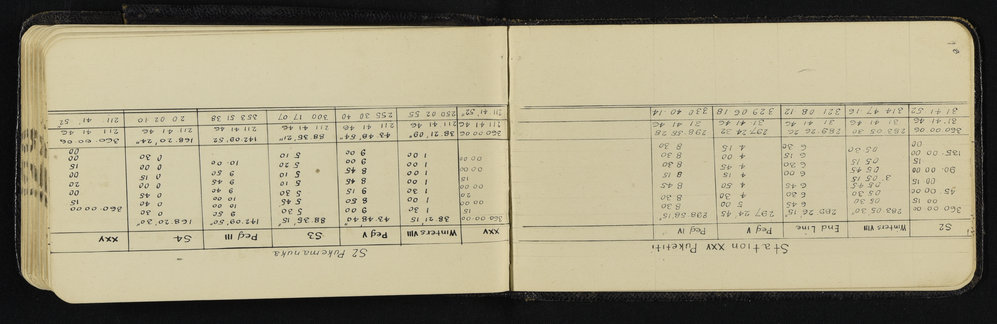 Station XXV Puketiti
S2 Winters VIII End Line Peg V Peg IV
360 00 00 283.05.30" 289.26'.15" 297 24 45 298.58'.15"
15 05 30 6 45 5 00 8 30
00 00 05 30 6 30 4 30 8 30
15 05 45 6 45 8 45
90. 00 00 3.05 15 6 15 4 8 15
15 05 45 6 30 4 8 30
135. 00 00 05 15 6 4 00 8 30
00 05 30 6 30 4 15 8 30
360 00 06 283 05 30 289 26 26 297 24 32 298 58 28
31 41 46 31 41 46 31 41 46 31 41 46 31 41 46
31 41 52 314 47 16 321 08 12 329 06 18 330 40 14
S2 Pukemanuka
XXV Winters VIII Peg V S3 Peg III S4 XXV
360 00 00 38 21 15 43 48 40 88 36 15" 142.09.50" 168.20'.30" 360 00 00
15 1 30 9 00 5 30 9 50 0 30 15
00 00 1 00 8 50 5 45 10 00 0 45 00
1 00 9 15 5 30 9 40 0 00
00 00 1 00 8 45 5 10 9 45 0 00 00
15 1 00 8 45 5 10 9 50 0 15 15
00 00 1 00 9 00 5 20 10 00 0 00 00
1 00 9 00 5 10 0 30 00
360 00 06 38.21'.09" 43.48'.54" 88.36'.21" 142.09.52 168.20'.24" 360.00.06
211 41 46 211 41 46 211 41 46 211 41 46 211 41 46 211 41 46 211 41 46
211 41' 52" 250 02 55 255 30 40 300 17 07 353 51 38 20 02 10 211 41' 52"